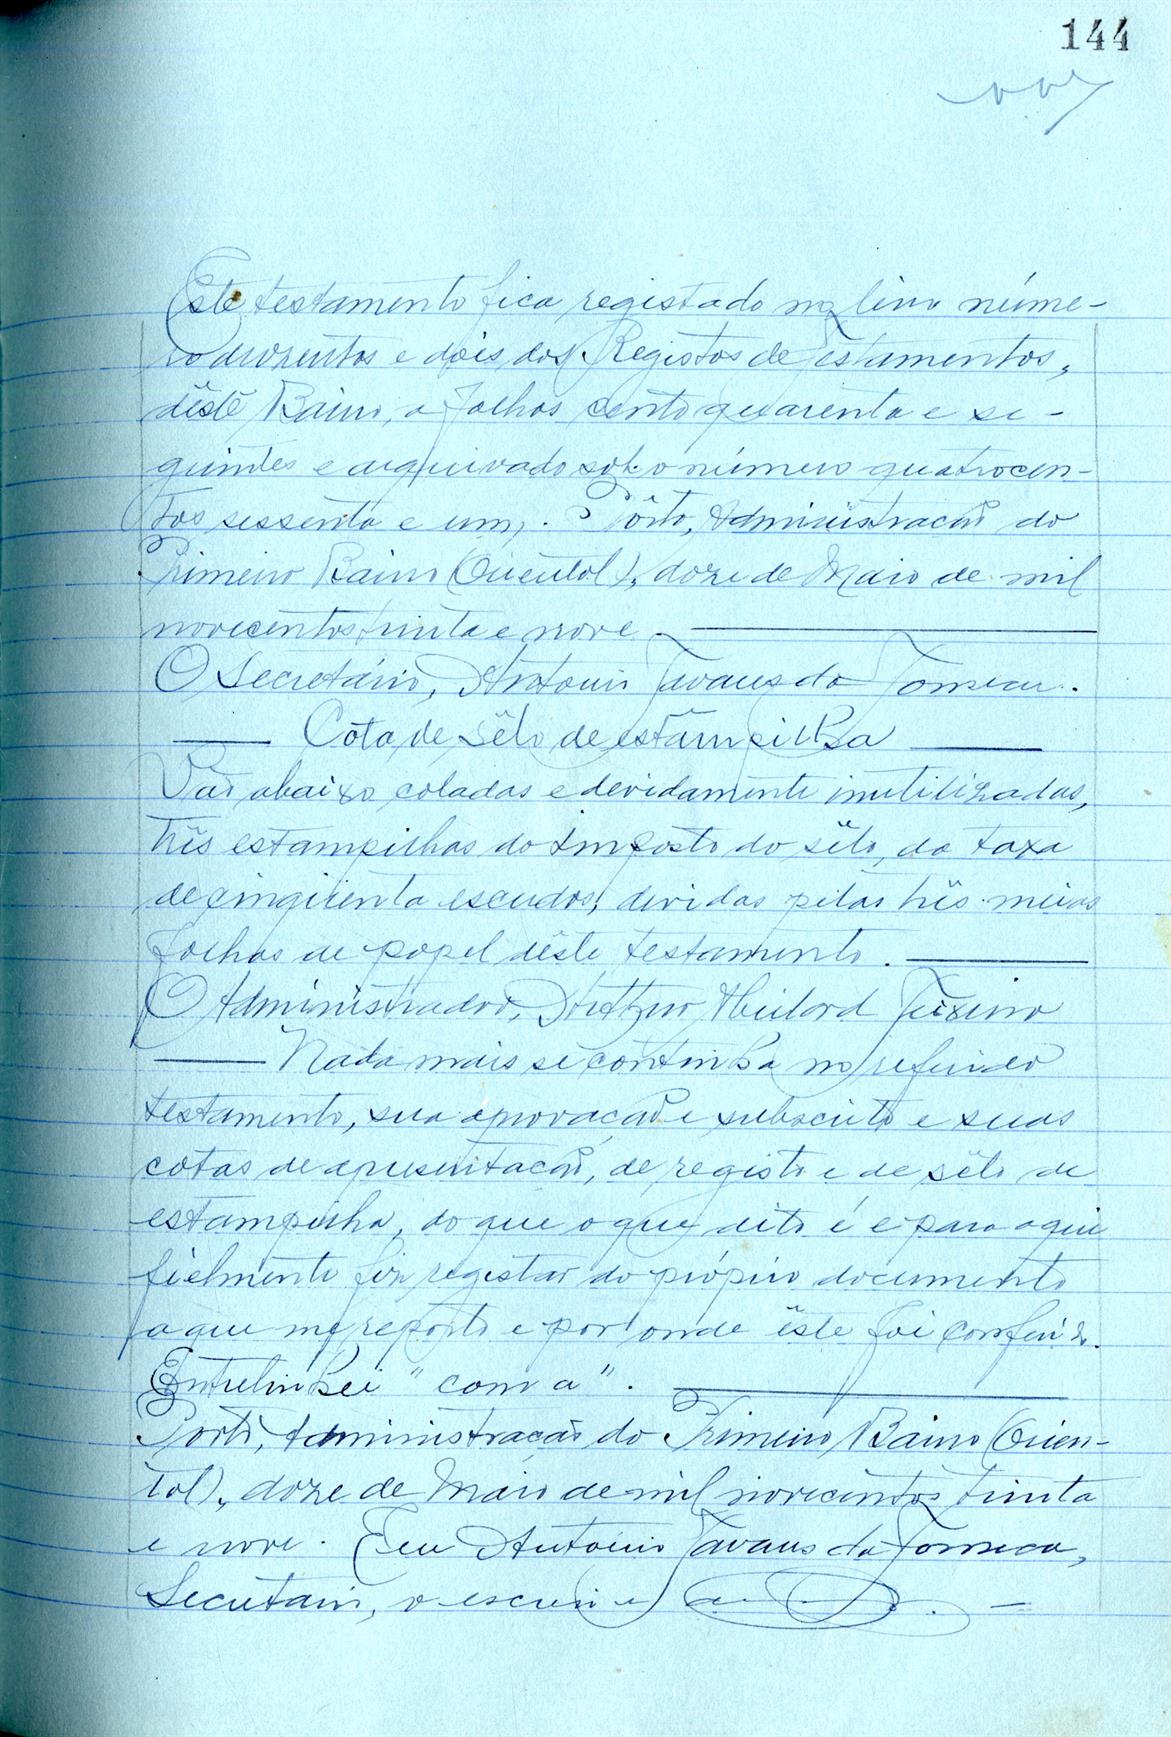 144
Este testamento fica registado no livro núme-
ro duzentos e dois dos Registos de Testamentos,
dêste Bairro, a folhas cento quarenta e se-
guintes e arquivado sob o número quatrocen-
tos sessenta e um. Pôrto, Administração do
Primeiro Bairro (Oriental), doze de Maio de mil
novecentos trinta e nove.
O Secretário, António Tavares da Fonseca.
Cota de sêlo de estampilha
Vão abaixo coladas e devidamente inutilizadas,
três estampilhas do imposto do sêlo, da taxa
de cinqùenta escudos, devidas pelas três meias
folhas de papel dêste testamento.
O Administrador, Arthur Teixeira
Nada mais se continha no referido
testamento, sua aprovação e subscrito e suas
cotas de apresentação, de registo e de sêlo de
estampilha, do que o que dito é e para aqui
fielmente fiz registar do próprio documento
a que me reporto e por onde êste foi conferido.
Entrelinhei "com a".
Porto, Administração do Primeiro Bairro (Orien-
tal), doze de Maio de mil novecentos trinta
e nove. Eu António Tavares da Fonseca,
Secretário, o escrevi e